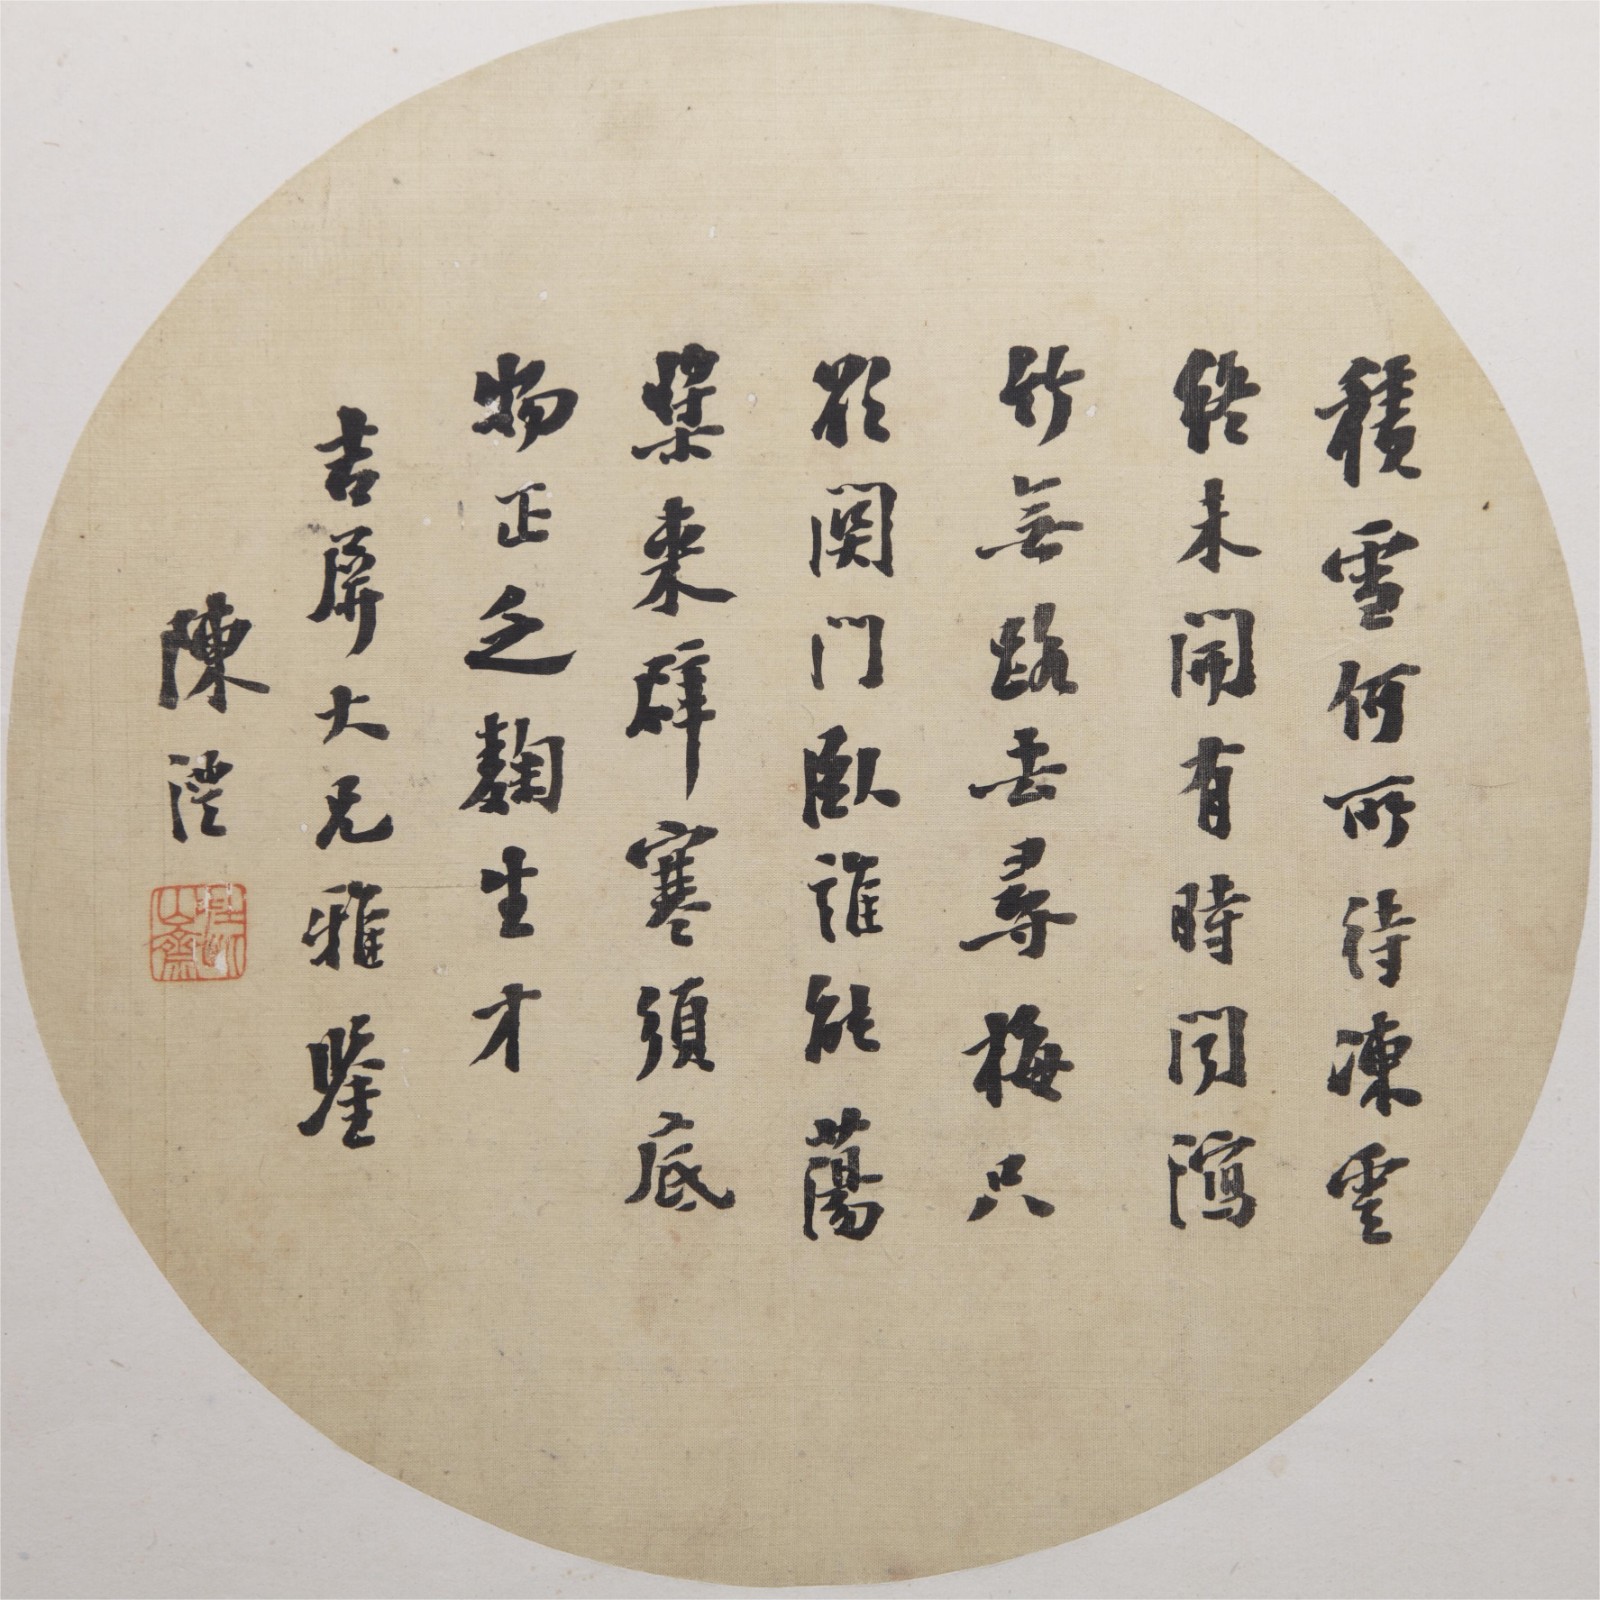 積雪何所待凍雲
終未開有時聞瀉
竹無路去尋梅只
欲関門臥誰能蕩
槳來辟寒須底
物正乏麴生才
吉屏大兄雅鑒
陳澧